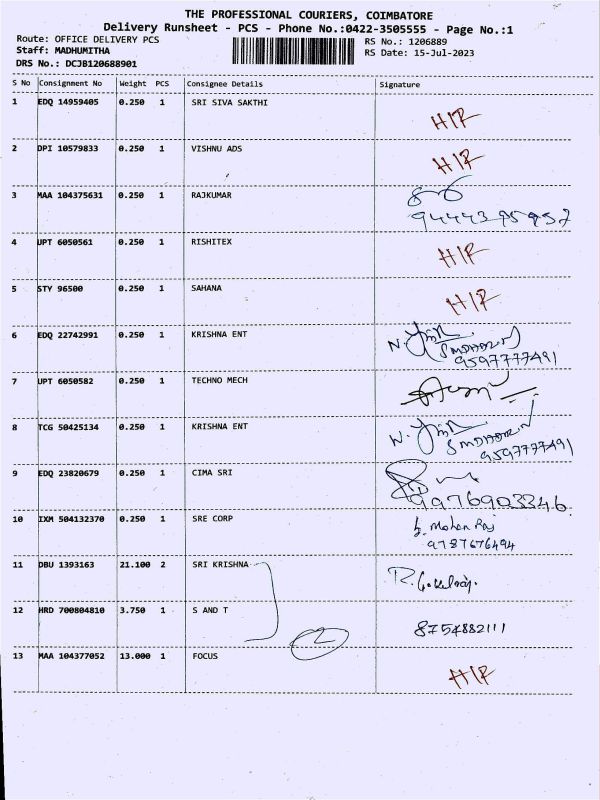 THE PROFESSIONAL COURIERS, COIMBATORE
Delivery Runsheet - PCS - Phone No.:0422-3505555 - Page No.:1
Route: OFFICE DELIVERY PCS RS No.: 1206889
Staff: MADHUMITHA RS Date: 15-Jul-2023
DRS No.: DCJB120688901
S No Consignment No Weight PCS Consignee Details Signature
1 EDQ 14959405 0.250 1 SRI SIVA SAKTHI
H/R
2 DPI 10579833 0.250 1 VISHNU ADS
H/R
3 MAA 104375631 0.250 1 RAJKUMAR
9444395957
4 UPT 6050561 0.250 1 RISHITEX
H/R
5 STY 96500 0.250 1 SAHANA
H/R
6 EDQ 22742991 0.250 1 KRISHNA ENT
9597777491
7 UPT 6050582 0.250 1 TECHNO MECH
8 TCG 50425134 0.250 1 KRISHNA ENT
9597777491
9 EDQ 23820679 0.250 1 CIMA SRI
9976903346
10 IXM 504132370 0.250 1 SRE CORP
Mohan Raj
9787676494
11 DBU 1393163 21.100 2 SRI KRISHNA
12 HRD 700804810 3.750 1 S AND T
8754882111
2
13 MAA 104377052 13.000 1 FOCUS
H/R